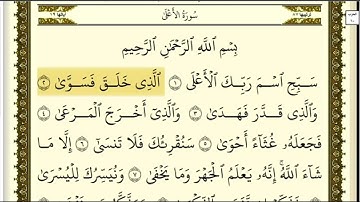 سُورَةُ الأَعْلَى
بِسْمِ اللَّهِ الرَّحْمَٰنِ الرَّحِيمِ
سَبِّحِ اسْمَ رَبِّكَ الْأَعْلَى ١ الَّذِي خَلَقَ فَسَوَّىٰ ٢
وَالَّذِي قَدَّرَ فَهَدَىٰ ٣ وَالَّذِي أَخْرَجَ الْمَرْعَىٰ ٤
فَجَعَلَهُ غُثَاءً أَحْوَىٰ ٥ سَنُقْرِئُكَ فَلَا تَنسَىٰ ٦ إِلَّا مَا
شَاءَ اللَّهُ إِنَّهُ يَعْلَمُ الْجَهْرَ وَمَا يَخْفَىٰ ٧ وَنُيَسِّرُكَ لِلْيُسْرَىٰ